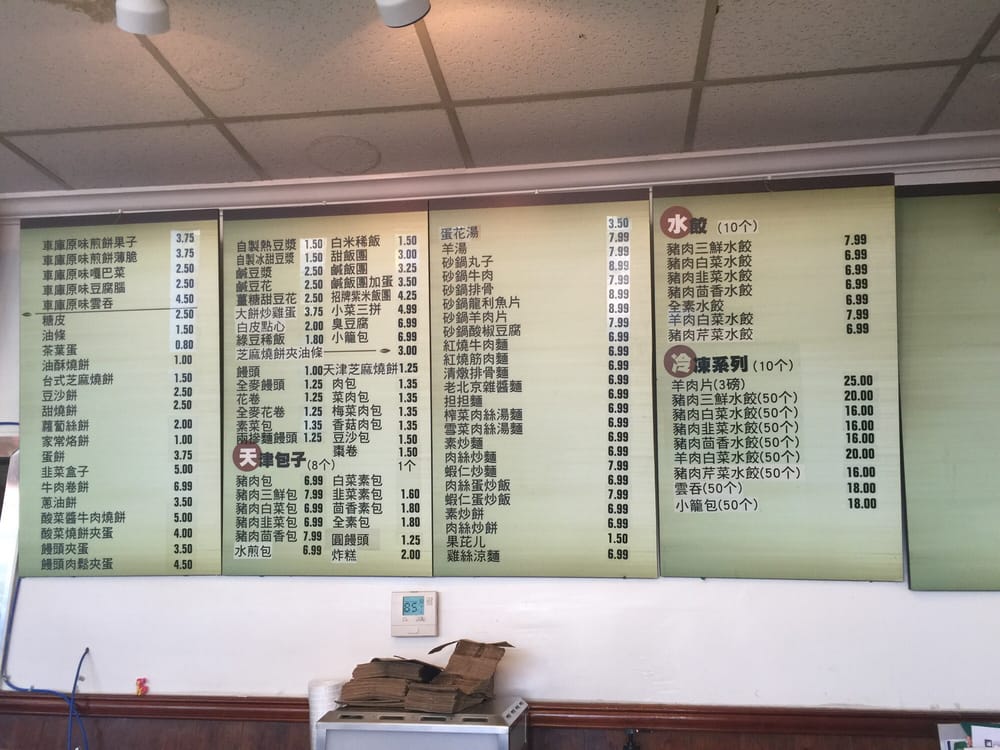 車庫原味煎餅果子 3.75
車庫原味煎餅薄脆 3.75
車庫原味嘎巴菜 2.50
車庫原味豆腐腦 2.50
車庫原味雲吞 4.50
糖皮 2.50
油條 1.50
茶葉蛋 0.80
油酥燒餅 1.00
台式芝麻燒餅 1.50
豆沙餅 2.50
甜燒餅 2.50
蘿蔔絲餅 2.00
家常烙餅 1.00
蛋餅 3.75
韭菜盒子 5.00
牛肉卷餅 6.99
蔥油餅 3.50
酸菜醬牛肉燒餅 5.00
酸菜燒餅夾蛋 4.00
饅頭夾蛋 3.50
饅頭肉鬆夾蛋 4.50
自製熱豆漿 1.50
自製冰甜豆漿 1.50
鹹豆漿 2.50
鹹豆花 2.50
薑糖甜豆花 2.50
大餅炒雞蛋 3.75
白皮點心 2.00
綠豆稀飯 1.80
芝麻燒餅夾油條 3.00
白米稀飯 1.50
甜飯團 3.00
鹹飯團 3.25
鹹飯團加蛋 3.50
招牌紫米飯團 4.25
小菜三拼 4.99
臭豆腐 6.99
小籠包 6.99
饅頭 1.00
全麥饅頭 1.25
花卷 1.25
全麥花卷 1.25
素菜包 1.35
兩摻麵饅頭 1.25
天津芝麻燒餅 1.25
肉包 1.35
菜肉包 1.35
梅菜肉包 1.35
香菇肉包 1.35
豆沙包 1.50
棗卷 1.50
天津包子(8个) 1个
豬肉包 6.99
豬肉三鮮包 7.99
豬肉白菜包 6.99
豬肉韭菜包 6.99
豬肉茴香包 7.99
水煎包 6.99
白菜素包
韭菜素包 1.60
茴香素包 1.80
全素包 1.80
圓饅頭 1.25
炸糕 2.00
蛋花湯 3.50
羊湯 7.99
砂鍋丸子 8.99
砂鍋牛肉 7.99
砂鍋排骨 8.99
砂鍋龍利魚片 8.99
砂鍋羊肉片 7.99
砂鍋酸椒豆腐 6.99
紅燒牛肉麵 6.99
紅燒筋肉麵 6.99
清燉排骨麵 6.99
老北京雜醬麵 6.99
担担麵 6.99
榨菜肉絲湯麵 6.99
雪菜肉絲湯麵 6.99
素炒麵 6.99
肉絲炒麵 6.99
蝦仁炒麵 7.99
肉絲蛋炒飯 6.99
蝦仁蛋炒飯 6.99
素炒餅 6.99
肉絲炒餅 6.99
果芘儿 1.50
雞絲涼麵 6.99
水餃 (10个)
豬肉三鮮水餃 7.99
豬肉白菜水餃 6.99
豬肉韭菜水餃 6.99
豬肉茴香水餃 6.99
全素水餃 6.99
羊肉白菜水餃 7.99
豬肉芹菜水餃 6.99
冷凍系列 (10个)
羊肉片(3磅) 25.00
豬肉三鮮水餃(50个) 20.00
豬肉白菜水餃(50个) 16.00
豬肉韭菜水餃(50个) 16.00
豬肉茴香水餃(50个) 16.00
羊肉白菜水餃(50个) 20.00
豬肉芹菜水餃(50个) 16.00
雲吞(50个) 18.00
小籠包(50个) 18.00
85